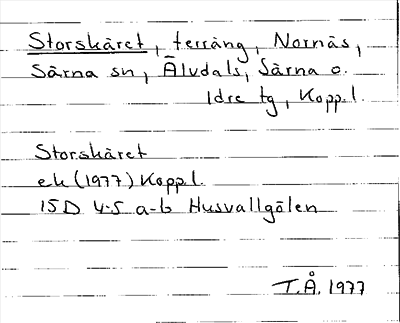 Storskäret, terräng, Nornäs,
Särna sn, Älvdals, Särna o.
Idre tg, Kopp.l.
Storskäret
ek (1977) Kopp.l.
15D 4-5 a-b Husvallgölen
T.Å. 1977